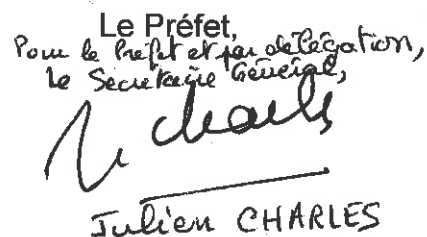 Le Préfet,
Pour le Préfet et par délégation,
Le Secrétaire Général,
J. Charles
Julien CHARLES